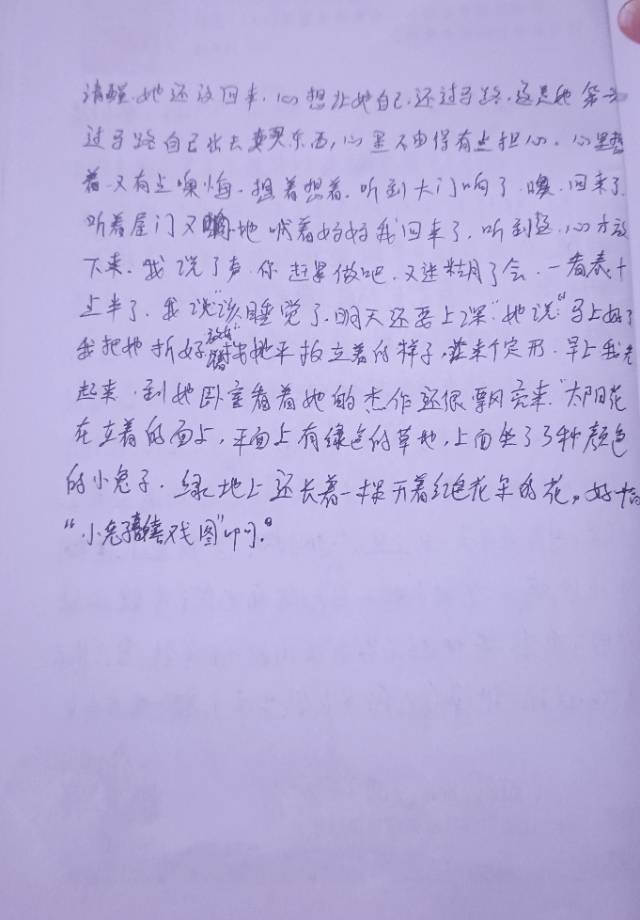 清醒.她还没回来.心想让她自己还过马路.这是她第一次
过马路自己出去买东西,心里不由得有点担心.心里想
着又有点懊悔.想着想着.听到大门响了.噢.回来了.
听着屋门又响她喊着妈妈我回来了.听到这,心才放
下来.我说了声.你赶紧做吧.又迷糊了会.一看表十
点半了.我说"该睡觉了.明天还要上课"她说"马上好了
我把她折好 她平拍立着的样子,来个定形.早上我
起来.到她卧室看着她的杰作还很漂亮来."太阳花
在立着的面上,平面上有绿色的草地,上面坐了3种颜色
的小兔子.绿地上还长着一棵开着红色花朵的花。好
"小兔子嬉戏图"啊.